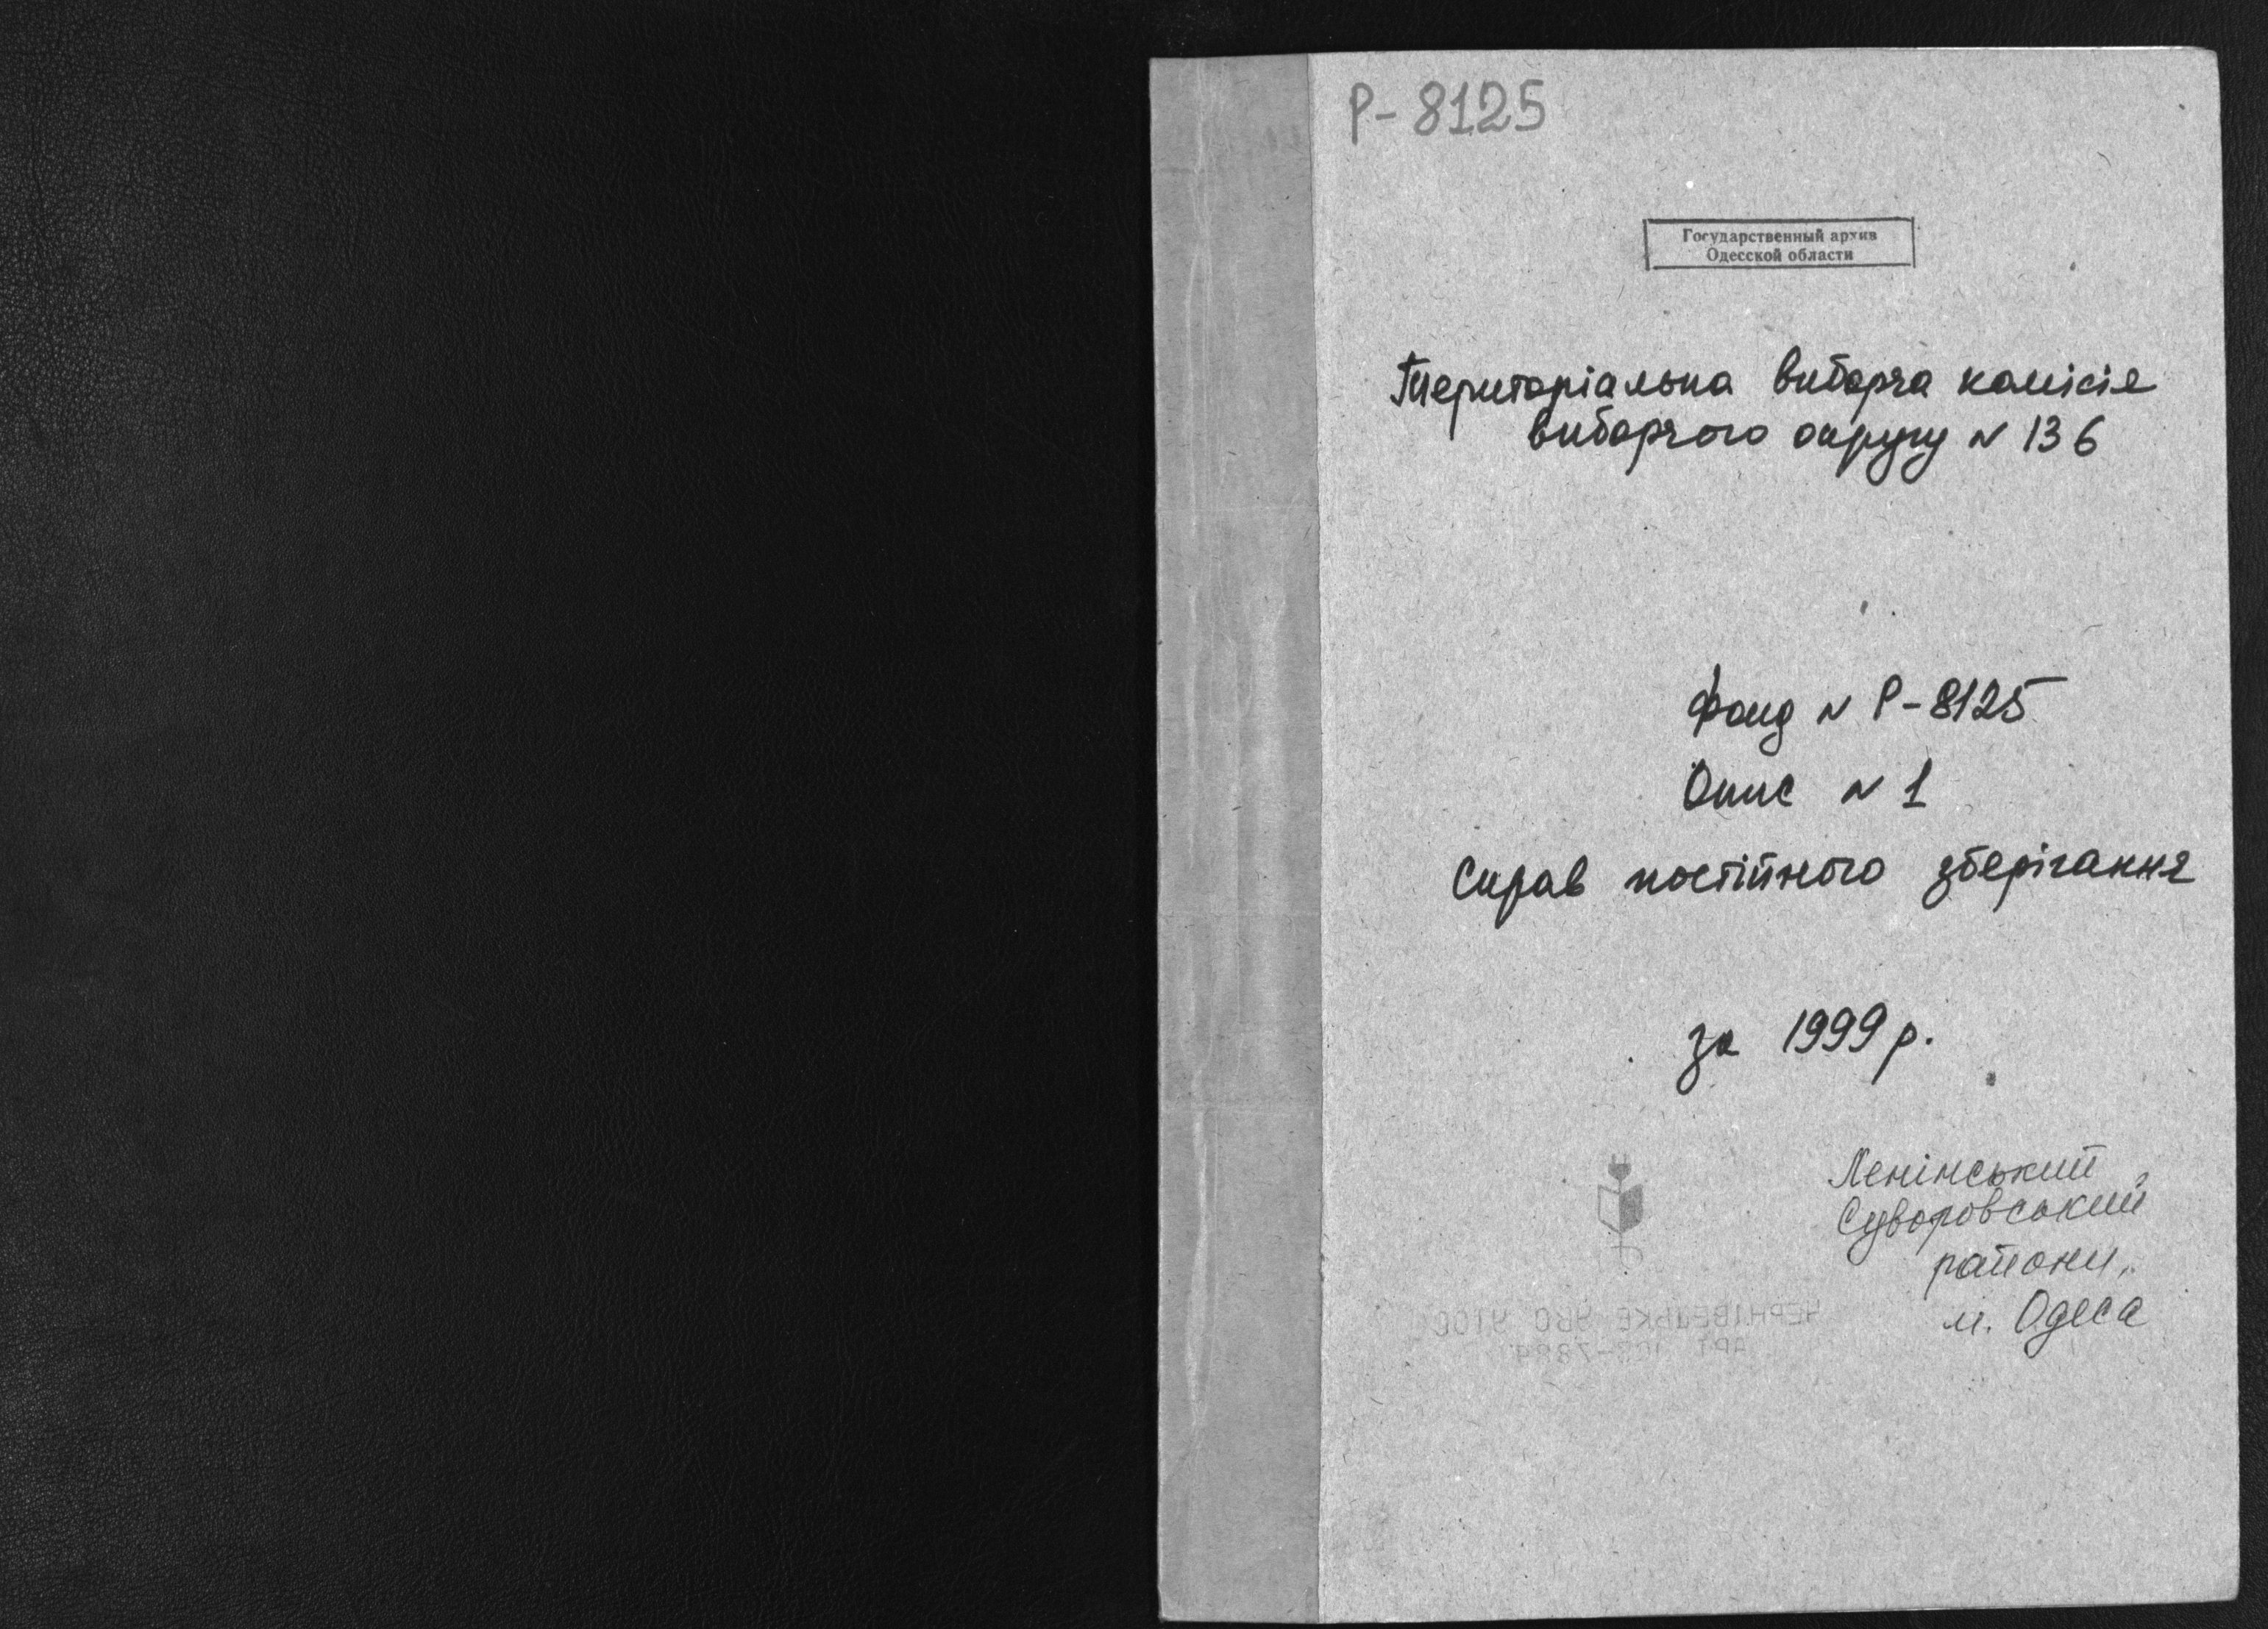 Р-8125
Государственный архив
Одесской области
Територіальна виборча комісія
виборчого округу N 136
Фонд N Р-8125
Опис N 1
Справ постійного зберігання
за 1999 р.
Ленінський
Суворовський
райони,
м. Одеса